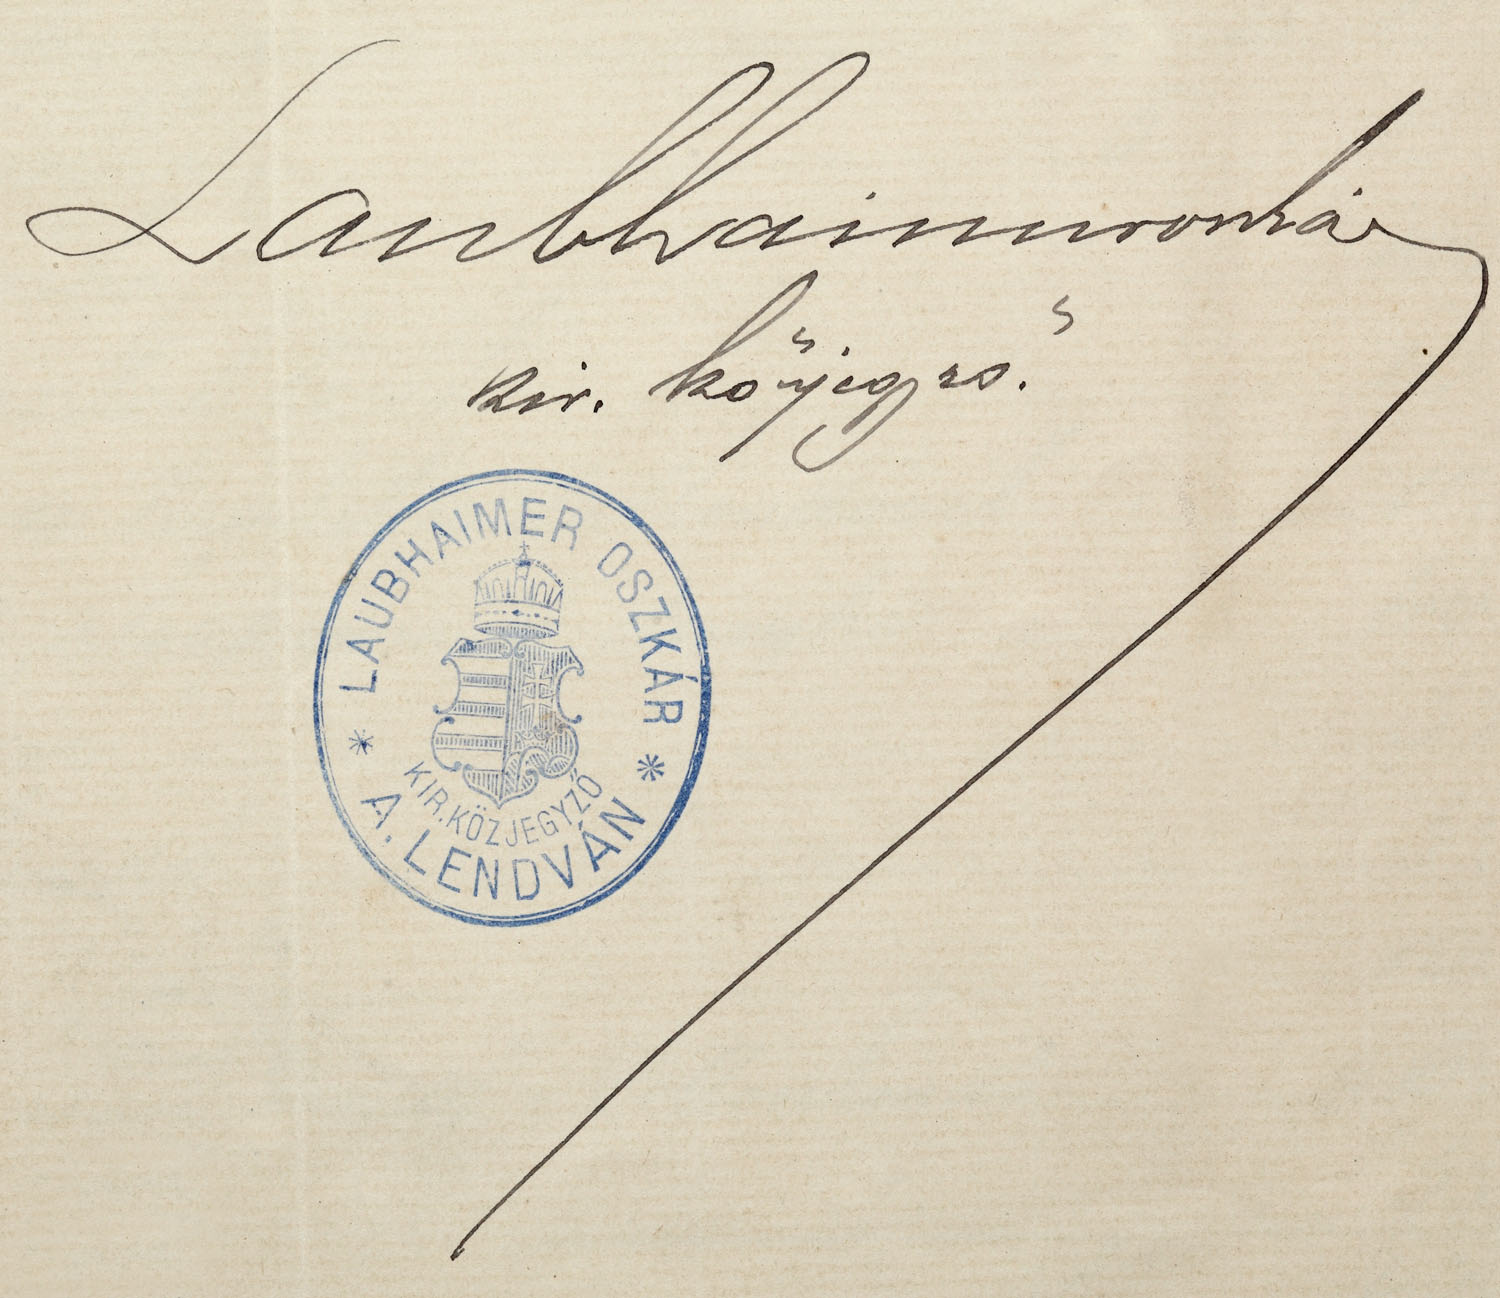 Laubhaimer Oszkár
kir. közjegyző.
LAUBHAIMER OSZKÁR
KIR. KÖZJEGYZŐ
A. LENDVÁN